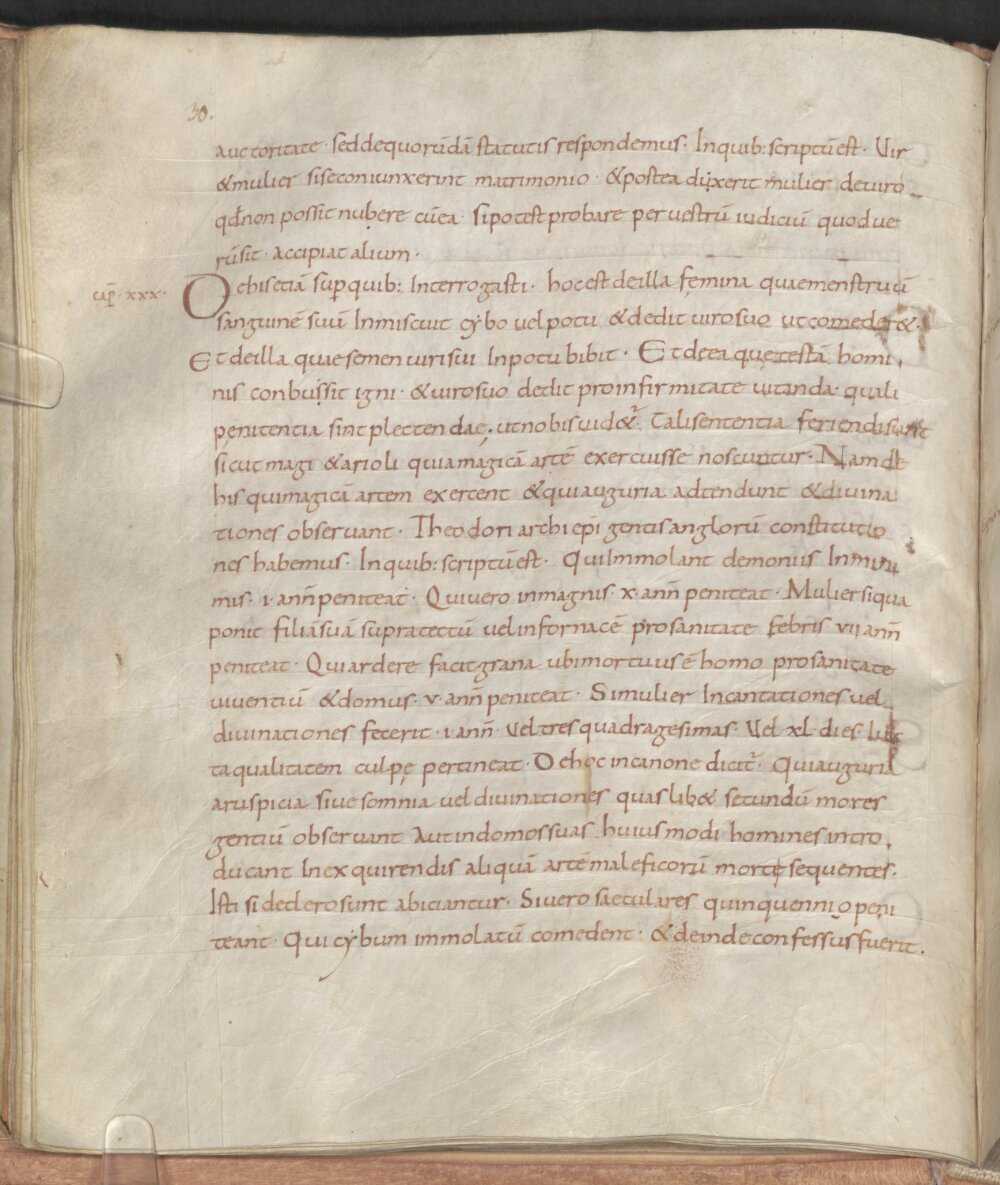 30.
auctoritate · sed de quorūdā statutis respondemus · In quib: scriptū est · Vir
& mulier si se coniunxerint matrimonio · & postea dixerit mulier de viro
qd̄ non possit nubere cū ea · si potest probare per vestrū iudiciū quod ve
rū sit · accipiat alium ·
cap̄ · xxx · De his etiā sup̄ quib: Interrogasti · hoc est de illa femina quae menstruū
sanguinē suū Inmiscuit cybo vel potu & dedit viro suo ut comeder&.
Et de illa quae semen viri sui In potu bibit · Et de ea quę testā homi
nis conbussit igni · & viro suo dedit pro infirmitate vitanda · quali
penitentia sint plectendae · ut nobis vid&ur̄ Tali sententia feriendi sunt
sicut magi & arioli quia magicā artē exercuisse noscuntur · Nam de
his qui magicā artem exercent & qui auguria adtendunt & divina
tiones observant · Theodori archiepī gentis anglorū constitutio
nes habemus · In quib: scriptū est · Qui Immolant demoniis In mini
mis · i · ann̄ peniteat · Qui vero in magnis · x · ann̄ peniteat · Mulier si qua
ponit filiā suā supra tectū vel in fornacē pro sanitate febris · vii ann̄
peniteat · Qui ardere facit grana ubi mortuus ē homo pro sanitate
viventiū & domus · v · ann̄ peniteat · Si mulier Incantationes vel
divinationes fecerit · i ann̄ · vel tres quadragesimas · Vel xl dies · Iux
ta qualitatem culpę pertineat · De hoc in canone dicit̄ · Qui auguria
aruspicia sive somnia vel divinationes quaslib& secundū mores
gentiū observant Aut in domos suas huius modi homines intro
ducant In exquirendis aliquā artē maleficorū morte sequentes ·
Isti si de clero sunt abiciantur · Si vero saeculares quinquennio peni
teant · Qui cybum immolatū comedent · & deinde confessus fuerit .